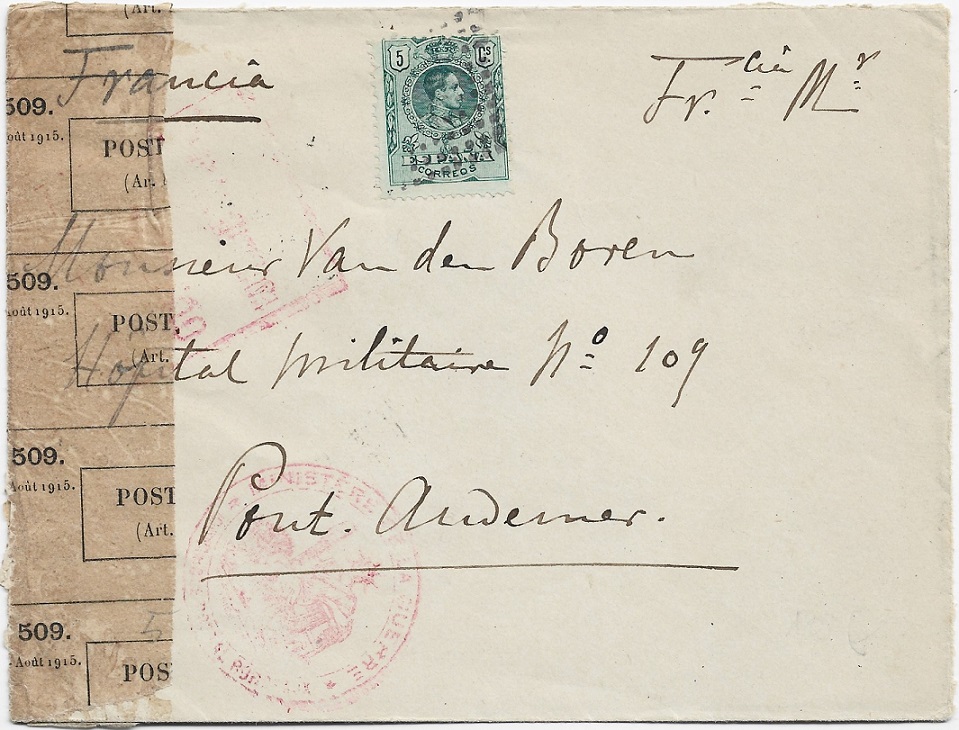 (Art.
Francia
Fr. cia Mr
5 Cs
ESPAÑA
CORREOS
509.
Août 1915.
POST
(Ar.
Monsieur Van den Boren
509.
Août 1915.
POST.
(Art.
Hôpital militaire No 109
509.
Août 1915.
POST
(Art.
Pont. Audemer.
MINISTÈRE DE LA GUERRE
509.
Août 1915.
POS